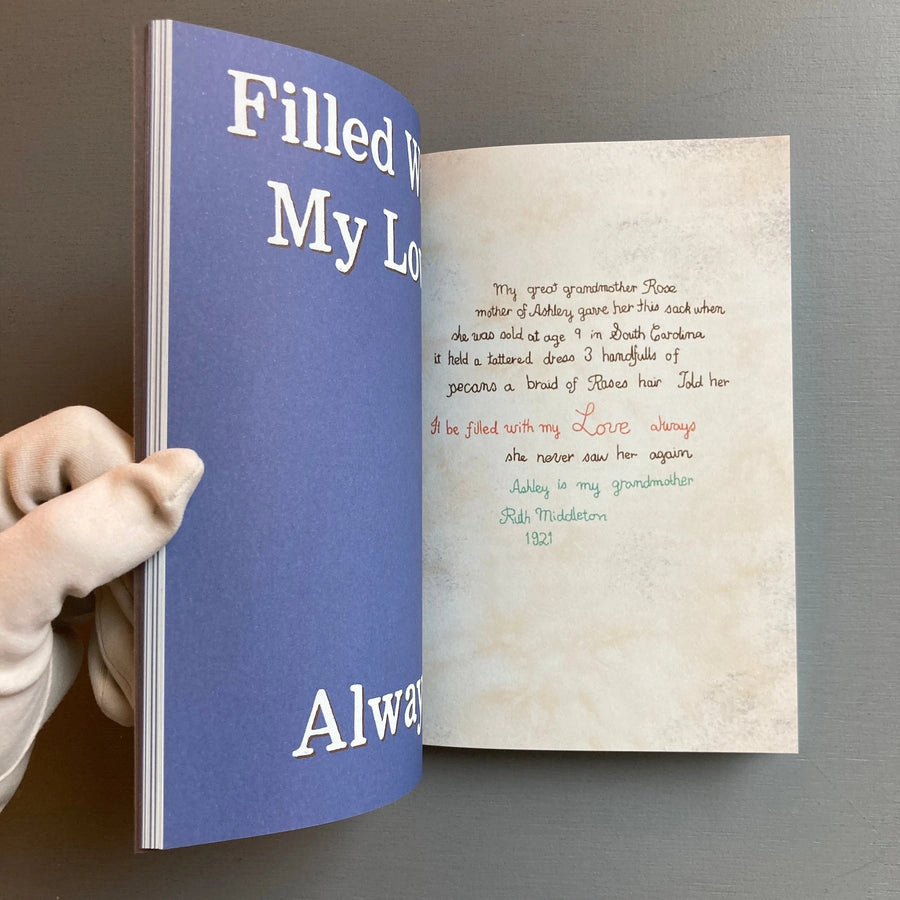 Filled W
My Lo
Alway
My great grandmother Rose
mother of Ashley gave her this sack when
she was sold at age 9 in South Carolina
it held a tattered dress 3 handfulls of
pecans a braid of Roses hair Told her
It be filled with my Love always
she never saw her again
Ashley is my grandmother
Ruth Middleton
1921